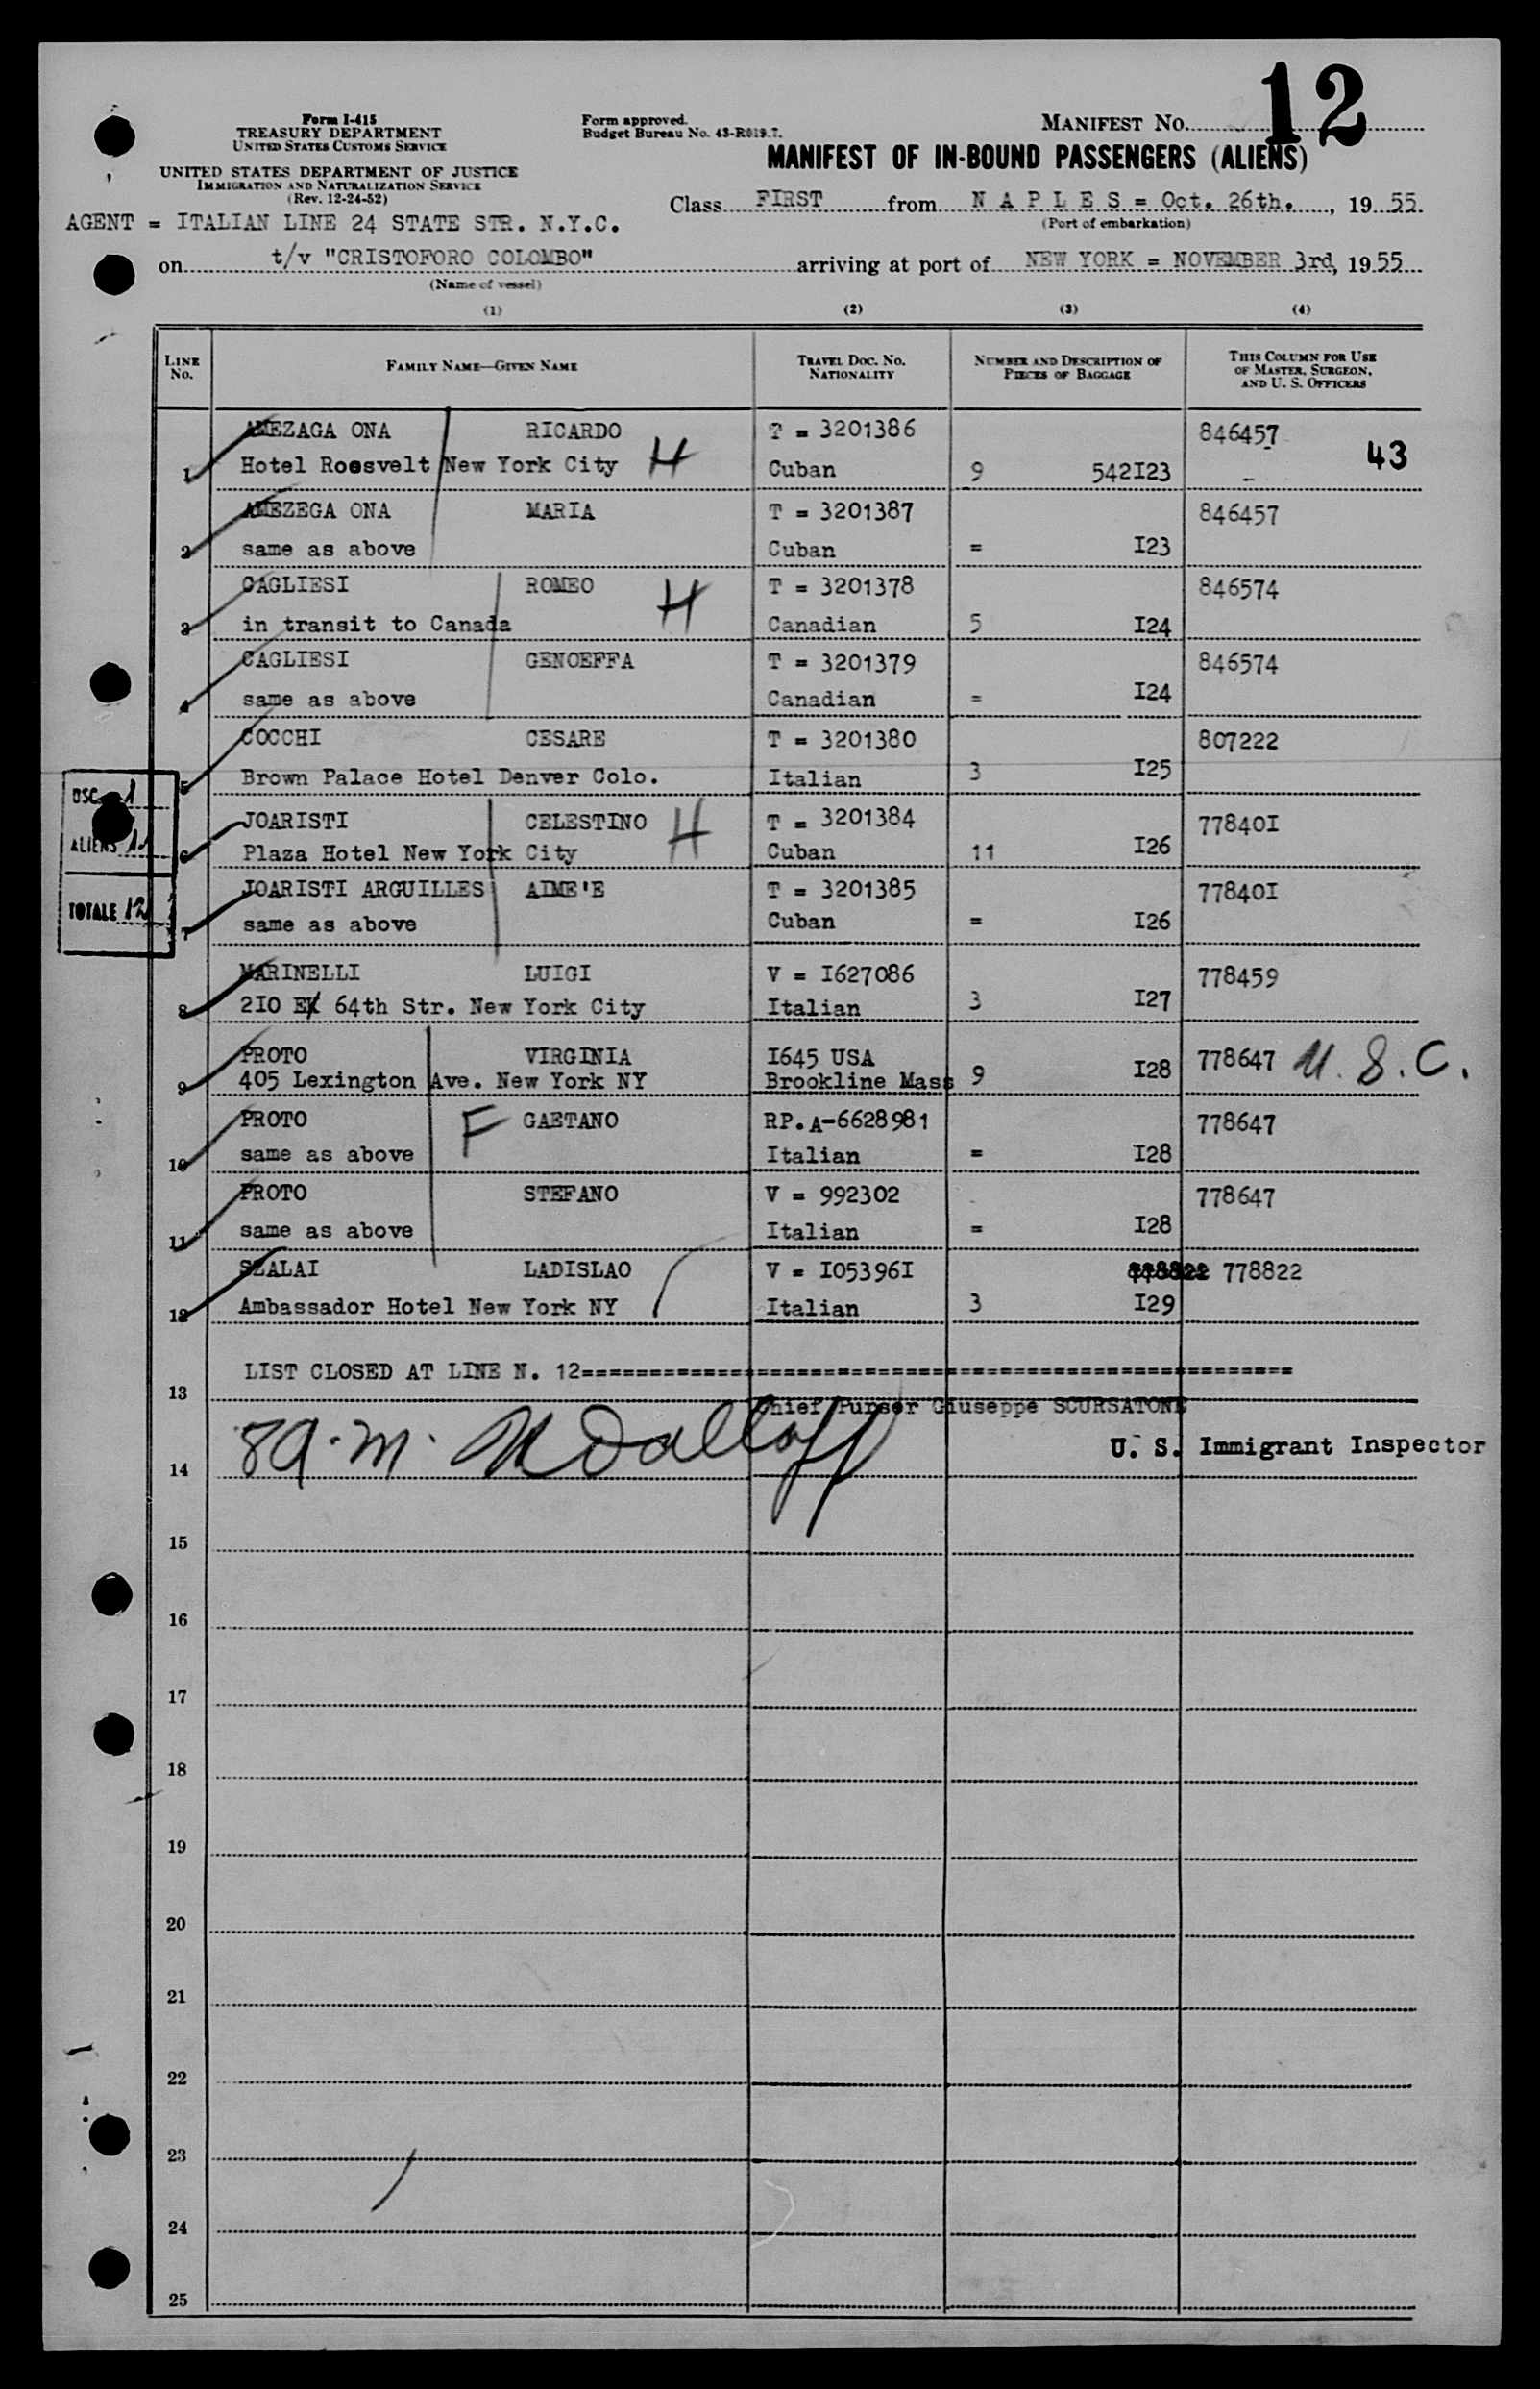 12
Form I-415
TREASURY DEPARTMENT
UNITED STATES CUSTOMS SERVICE
UNITED STATES DEPARTMENT OF JUSTICE
IMMIGRATION AND NATURALIZATION SERVICE
(Rev. 12-24-52)
Form approved.
Budget Bureau No. 43-R019.7.
MANIFEST No.
MANIFEST OF IN-BOUND PASSENGERS (ALIENS)
Class FIRST from N A P L E S = Oct. 26th. , 19 55
(Port of embarkation)
AGENT = ITALIAN LINE 24 STATE STR. N.Y.C.
on t/v "CRISTOFORO COLOMBO" arriving at port of NEW YORK = NOVEMBER 3rd, 19 55
(Name of vessel)
(1) (2) (3) (4)
LINE No. FAMILY NAME—GIVEN NAME TRAVEL DOC. NO. NATIONALITY NUMBER AND DESCRIPTION OF PIECES OF BAGGAGE THIS COLUMN FOR USE OF MASTER, SURGEON, AND U. S. OFFICERS
AMEZAGA ONA RICARDO T = 3201386 846457 43
1 Hotel Roesvelt New York City H Cuban 9 542I23
AMEZEGA ONA MARIA T = 3201387 846457
2 same as above Cuban = I23
CAGLIESI ROMEO H T = 3201378 846574
3 in transit to Canada Canadian 5 I24
CAGLIESI GENOEFFA T = 3201379 846574
4 same as above Canadian = I24
COCCHI CESARE T = 3201380 807222
5 Brown Palace Hotel Denver Colo. Italian 3 I25
USC 1
ALIENS 11
TOTALE 12
JOARISTI CELESTINO H T = 3201384 77840I
6 Plaza Hotel New York City Cuban 11 I26
JOARISTI ARGUILLES AIME'E T = 3201385 77840I
7 same as above Cuban = I26
MARINELLI LUIGI V = I627086 778459
8 2I0 E 64th Str. New York City Italian 3 I27
PROTO VIRGINIA I645 USA 778647 U. S. C.
9 405 Lexington Ave. New York NY Brookline Mass 9 I28
PROTO F GAETANO RP.A-6628981 778647
10 same as above Italian = I28
PROTO STEFANO V = 992302 778647
11 same as above Italian = I28
SZALAI LADISLAO V = I05396I 778822
12 Ambassador Hotel New York NY Italian 3 I29
LIST CLOSED AT LINE N. 12==========
13
Chief Purser Giuseppe SCURSATONE
U. S. Immigrant Inspector
14
15
16
17
18
19
20
21
22
23
24
25